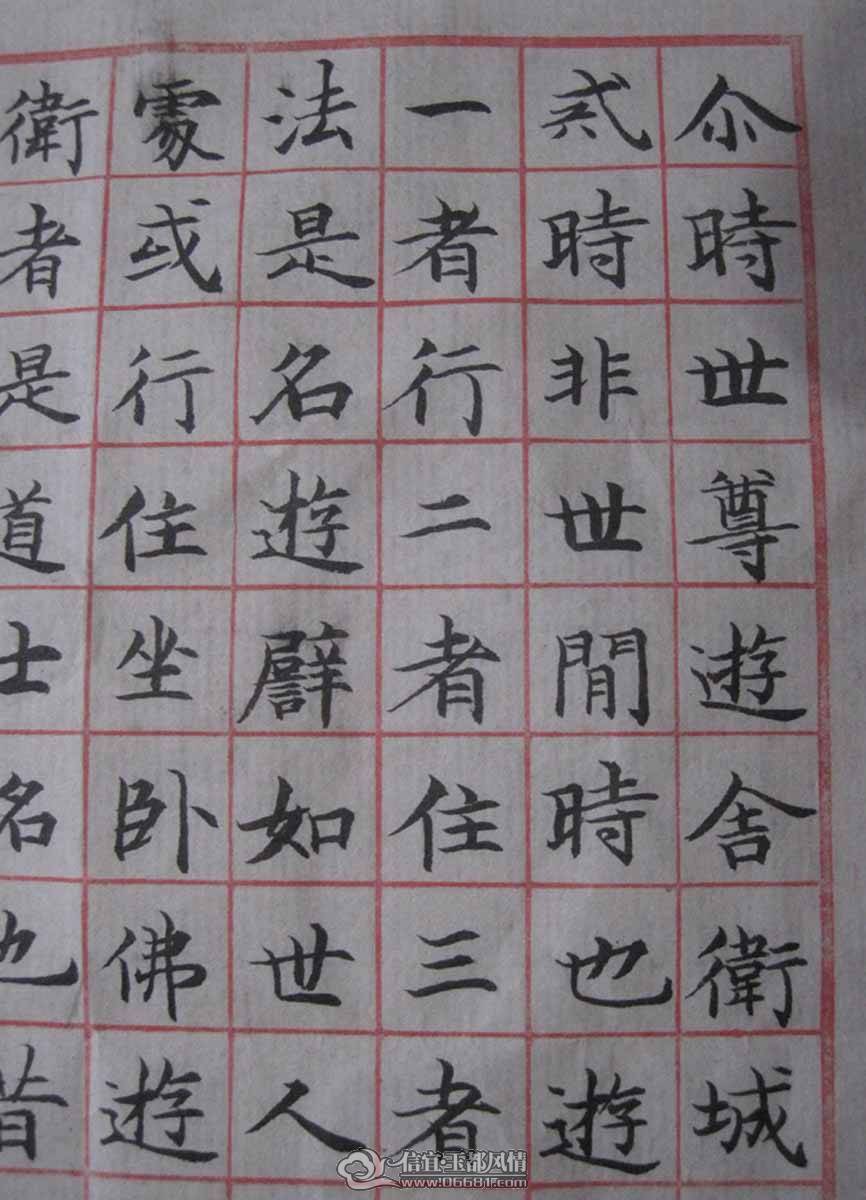 尒時世尊遊舍衛城
時非世間時也遊
一者行二者住三者
法是名遊譬如世人
處或行住坐卧佛遊
衛者是道士名也昔
信宜·玉都风情
www.06681.com